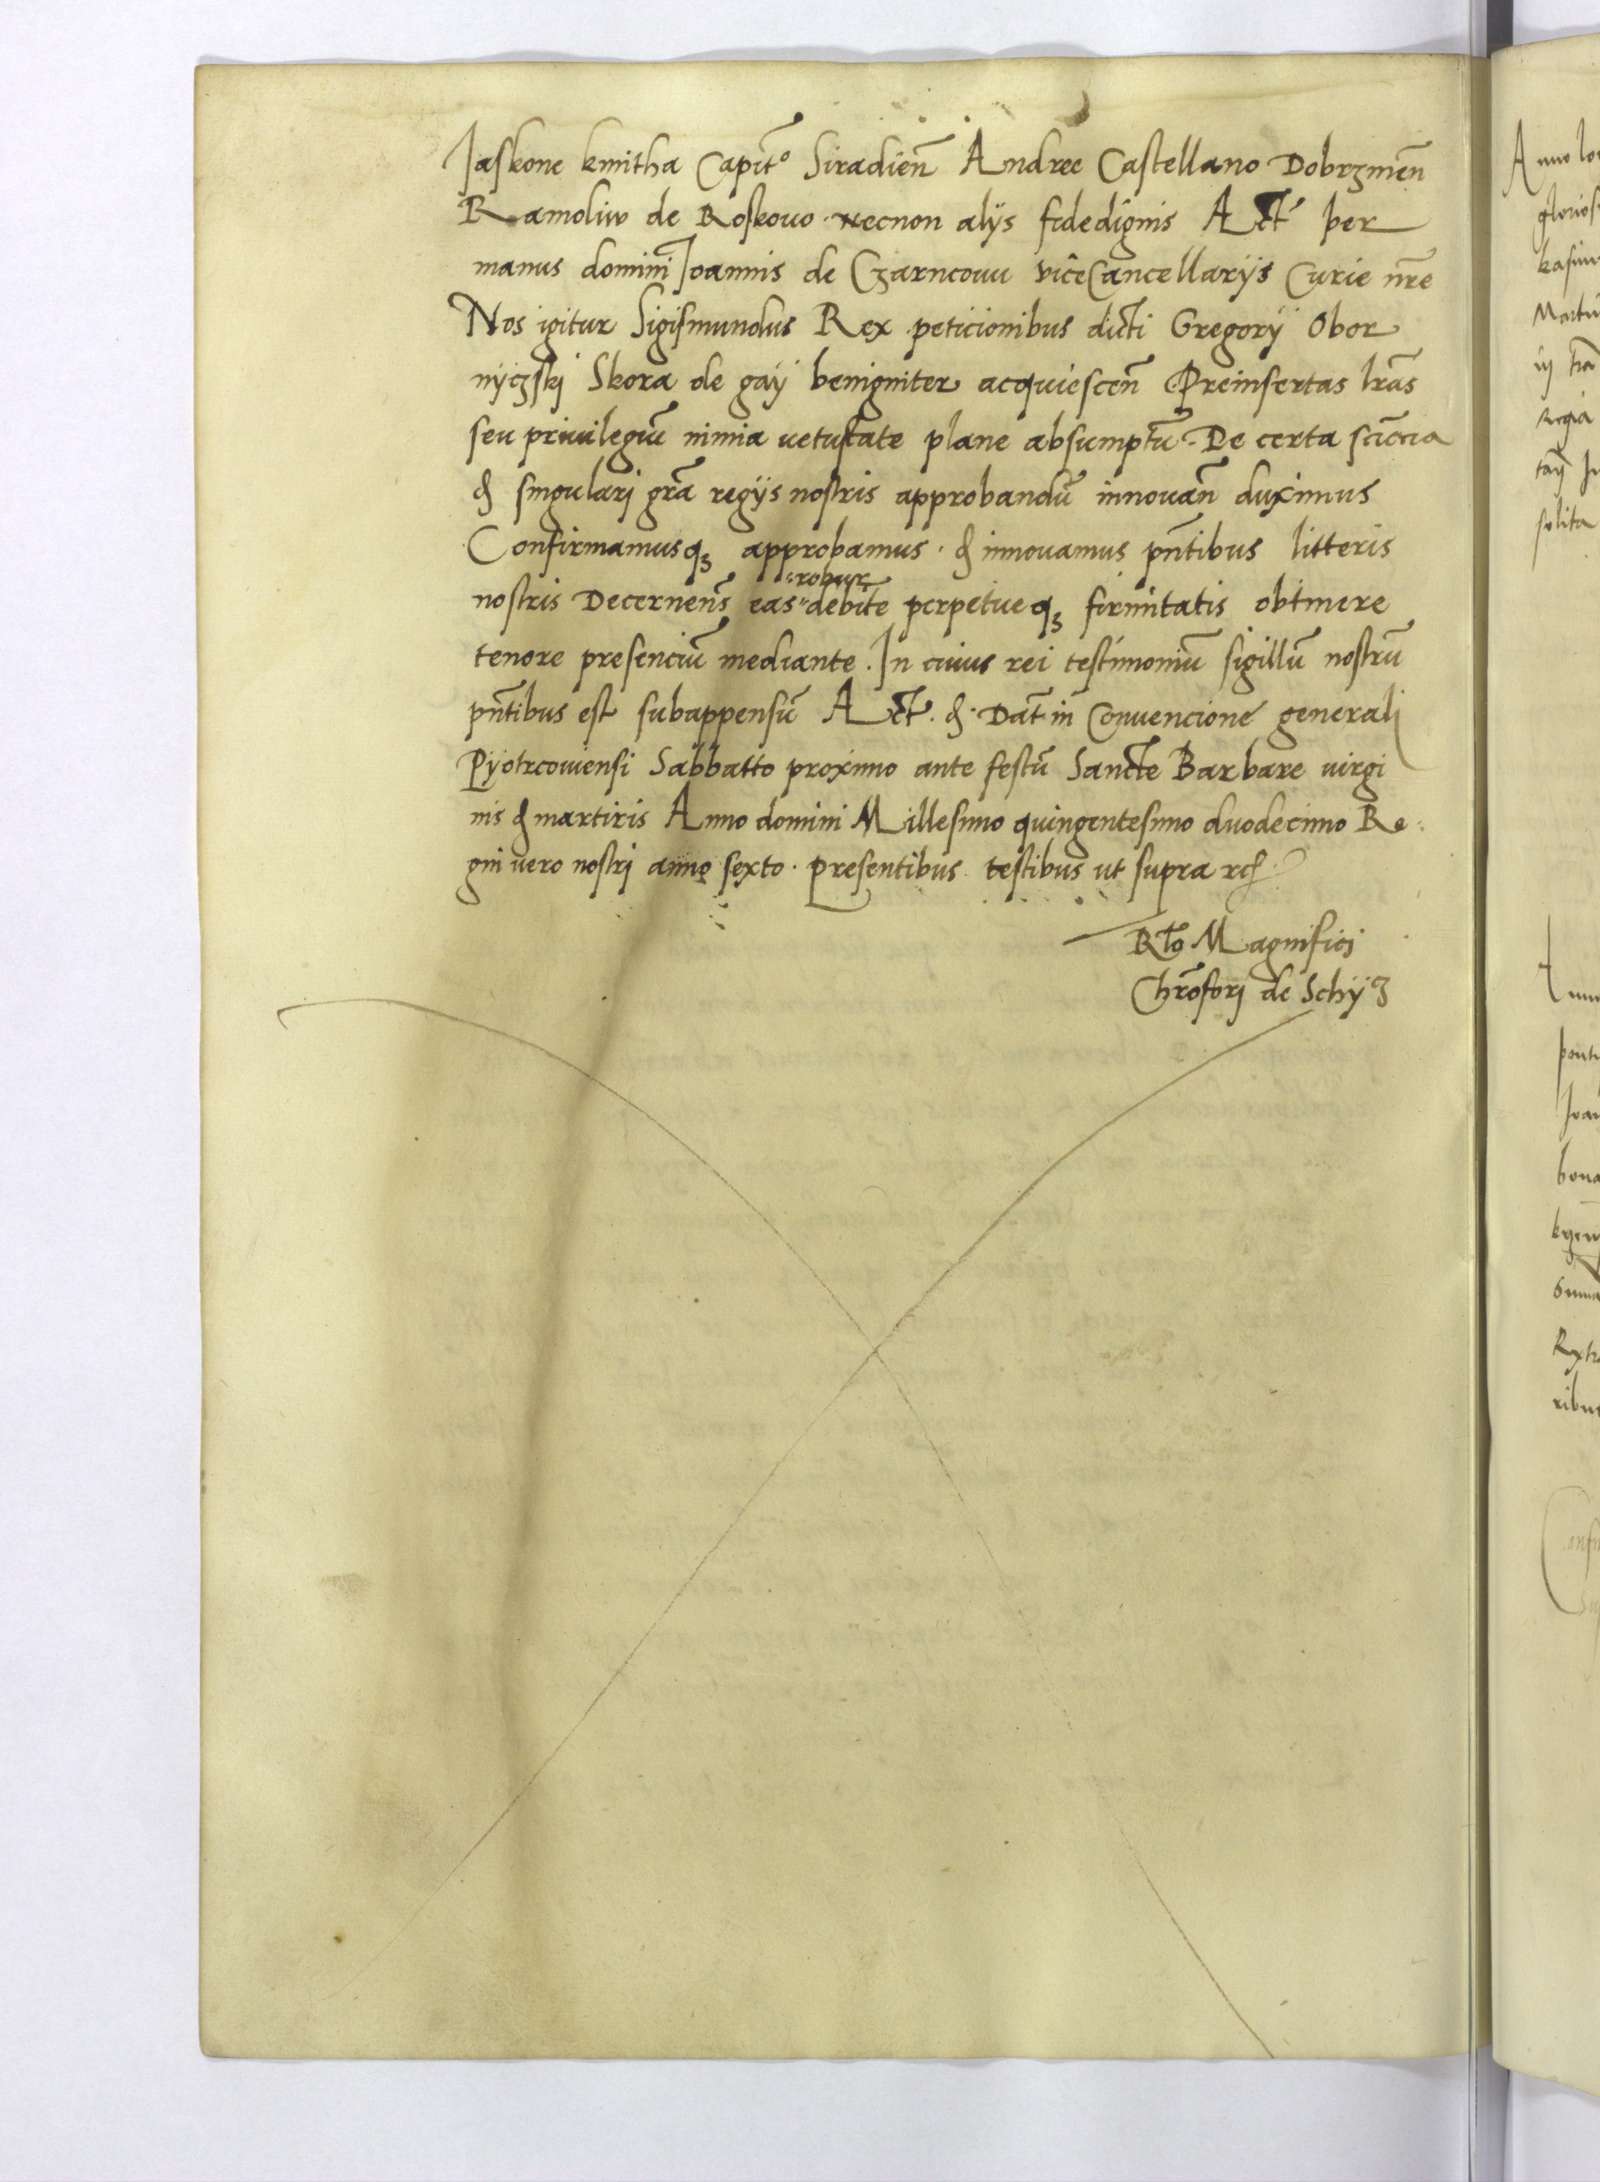 Jaskone kmitha Capit͂º Siradien̄ Andree Castellano Dobrzmen̄
Ramoliw de Roskouo necnon alÿs fidedignis Act̄ per
manus domini Joannis de Czarncouu vicecancellarÿs Curie nr̄e
Nos igitur Sigismundus Rex peticionibus dicti Gregorÿ Obor
nyczski Skora de gaÿ benigniter acquiescen̄ Preinsertas lr̄as
seu priuilegiū nimia uetustate plane absumptū De certa sciēcia
& singulari gr̄a regÿs nostris approbandū innouan̄ duximus
Confirmamusqꝫ approbamus & innouamus pn̄tibus litteris
nostris Decernen̄s eas robur debite perpetueqꝫ firmitatis obtinere
tenore presenciū mediante. In cuius rei testimoniū sigillū nostrū
pn̄tibus est subappensū Act̄. &. Dat̄ in Conuencione generali
Pÿotrcouiensi Sabbatto proximo ante festū Sancte Barbare uirgi
nis & martiris Anno domini Millesimo quingentesimo duodecimo Re
gni uero nostri anno sexto. Presentibus testibus ut supra rc̄
Rt̄o Magnifici
Chrōfori de Schÿ
Anno